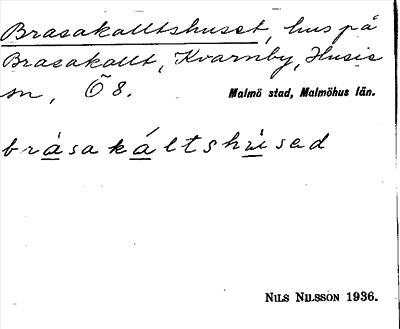 Brasakalltshuset, hus på
Brasakallt, Kvarnby, Husie
sn, Ö 8. Malmö stad, Malmöhus län.
bråsakáltshúsed
NILS NILSSON 1936.